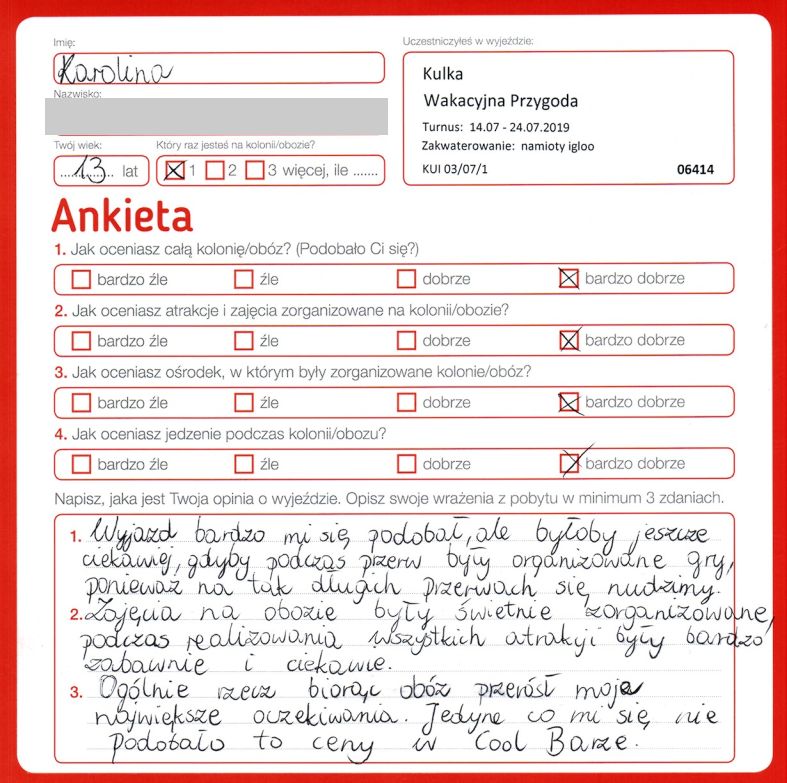 Imię:
Karolina
Nazwisko:
Twój wiek:
13 lat
Który raz jesteś na kolonii/obozie?
1 2 3 więcej, ile .......
Uczestniczyłeś w wyjeździe:
Kulka
Wakacyjna Przygoda
Turnus: 14.07 - 24.07.2019
Zakwaterowanie: namioty igloo
KUI 03/07/1 06414
Ankieta
1. Jak oceniasz całą kolonię/obóz? (Podobało Ci się?)
bardzo źle źle dobrze bardzo dobrze
2. Jak oceniasz atrakcje i zajęcia zorganizowane na kolonii/obozie?
bardzo źle źle dobrze bardzo dobrze
3. Jak oceniasz ośrodek, w którym były zorganizowane kolonie/obóz?
bardzo źle źle dobrze bardzo dobrze
4. Jak oceniasz jedzenie podczas kolonii/obozu?
bardzo źle źle dobrze bardzo dobrze
Napisz, jaka jest Twoja opinia o wyjeździe. Opisz swoje wrażenia z pobytu w minimum 3 zdaniach.
1. Wyjazd bardzo mi się podobał, ale byłoby jeszcze
ciekawiej, gdyby podczas przerw były organizowane gry,
ponieważ na tak długich przerwach się nudzimy.
2. Zajęcia na obozie były świetnie zorganizowane,
podczas realizowania wszystkich atrakyji były bardzo
zabawnie i ciekawie.
3. Ogólnie rzecz biorąc obóz przerósł moje
największe oczekiwania. Jedyne co mi się nie
podobało to ceny w Cool Barze.